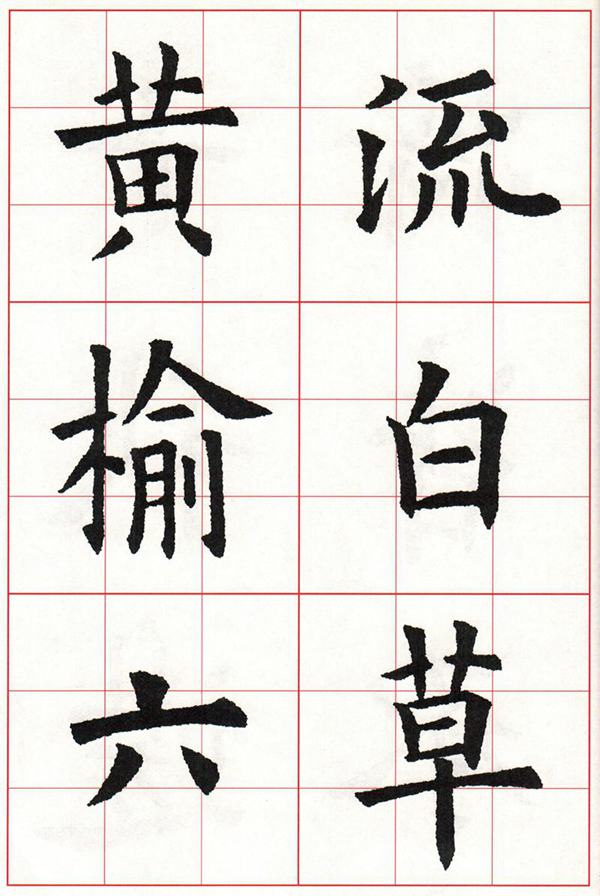 流白草
黄榆六